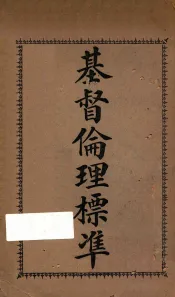 基督倫理標準